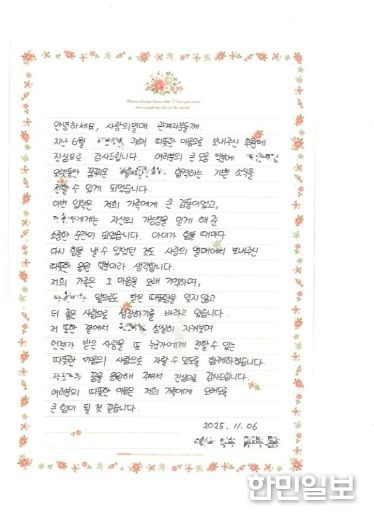 Please always know that I love you more
than anything else in the world.
안녕하세요, 사랑의열매 관계자분들께.
지난 6월 위해 따뜻한 마음으로 보내주신 후원에
진심으로 감사드립니다. 여러분의 큰 도움 덕분에
오랫동안 꿈꿔온 합격하는 기쁜 소식을
전할 수 있게 되었습니다.
이번 입학은 저희 가족에게 큰 감동이었고,
에게는 자신의 가능성을 믿게 해 준
소중한 순간이 되었습니다. 아이가 힘들 때마다
다시 힘을 낼 수 있었던 것도 사랑의 열매에서 보내주신
따뜻한 응원 덕분이라 생각합니다.
저희 가족은 그 마음을 오래 기억하며,
앞으로도 받은 따뜻함을 잊지 않고
더 좋은 사람으로 성장하기를 바라고 있습니다.
저 또한 곁에서 성실히 지켜보며
언젠가 받은 사랑을 또 누군가에게 전할 수 있는
따뜻한 마음의 사람으로 자랄 수 있도록 함께하겠습니다.
꿈을 응원해 주셔서 진심으로 감사드립니다.
여러분의 따뜻한 마음은 저희 가족에게 오래도록
큰 힘이 될 것 같습니다.
2025. 11. 06
한민일보